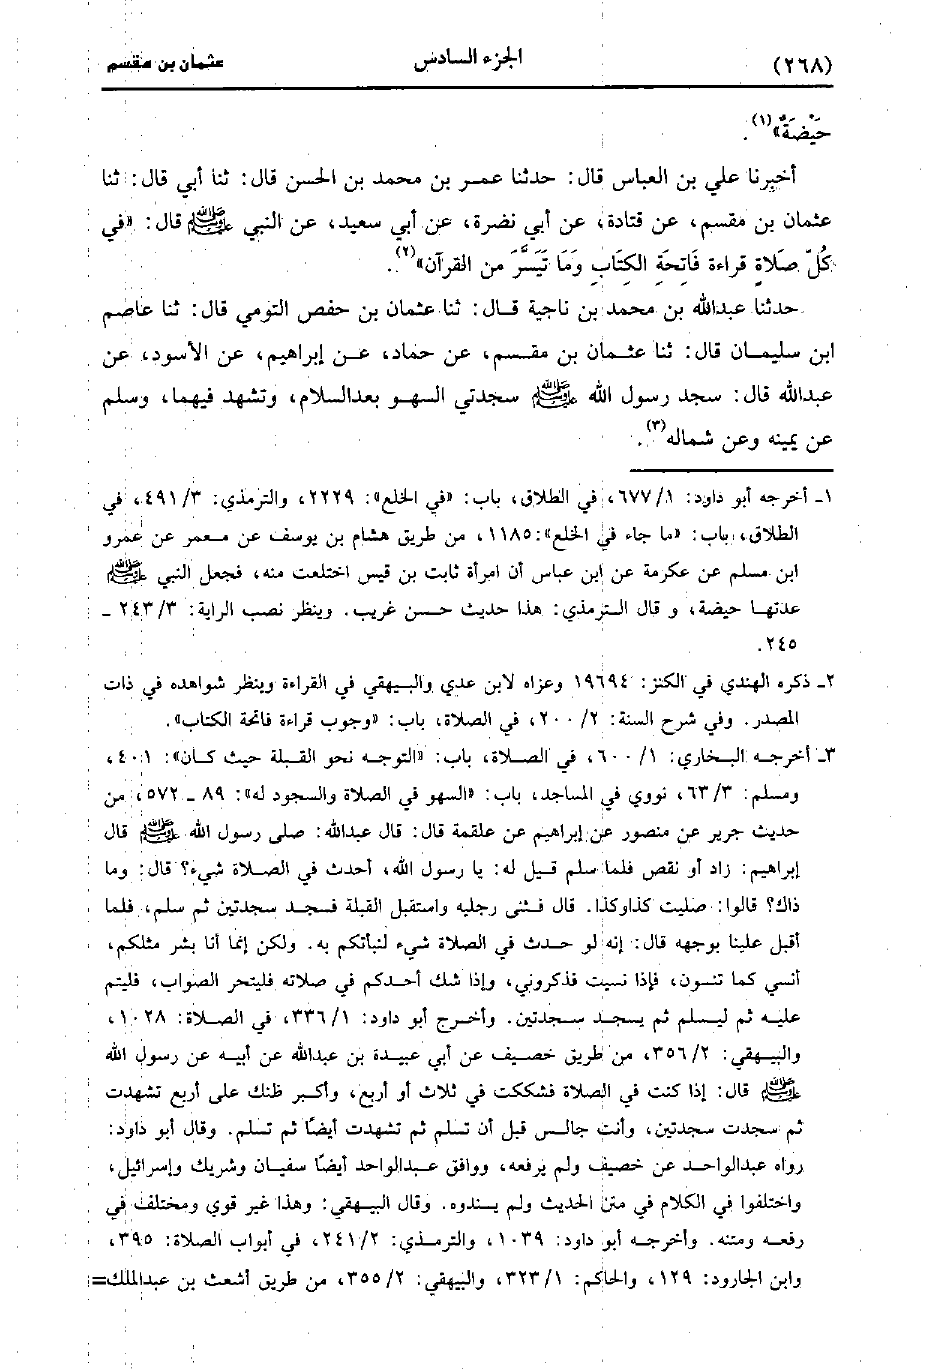 (٢٦٨) الجزء السادس عثمان بن مقسم
حَيْضَةً»(١).
أخبرنا علي بن العباس قال: حدثنا عمر بن محمد بن الحسن قال: ثنا أبي قال: ثنا
عثمان بن مقسم، عن قتادة، عن أبي نضرة، عن أبي سعيد، عن النبي ﷺ قال: «في
كُلِّ صَلَاةٍ قراءة فَاتِحَةِ الكِتَابِ وَمَا تَيَسَّرَ من القرآن»(٢).
حدثنا عبدالله بن محمد بن ناجية قال: ثنا عثمان بن حفص التومي قال: ثنا عاصم
ابن سليمان قال: ثنا عثمان بن مقسم، عن حماد، عن إبراهيم، عن الأسود، عن
عبدالله قال: سجد رسول الله ﷺ سجدتي السهو بعدالسلام، وتشهد فيهما، وسلم
عن يمينه وعن شماله(٣).
١ـ أخرجه أبو داود: ١/ ٦٧٧، في الطلاق، باب: «في الخلع»: ٢٢٢٩، والترمذي: ٣/ ٤٩١، في
الطلاق، باب: «ما جاء في الخلع»: ١١٨٥، من طريق هشام بن يوسف عن معمر عن عمرو
ابن مسلم عن عكرمة عن ابن عباس أن امرأة ثابت بن قيس اختلعت منه، فجعل النبي ﷺ
عدتها حيضة، و قال الترمذي: هذا حديث حسن غريب. وينظر نصب الراية: ٣/ ٢٤٣ ـ
٢٤٥.
٢ـ ذكره الهندي في الكنز: ١٩٦٩٤ وعزاه لابن عدي والبيهقي في القراءة وينظر شواهده في ذات
المصدر. وفي شرح السنة: ٢/ ٢٠٠، في الصلاة، باب: «وجوب قراءة فاتحة الكتاب».
٣ـ أخرجه البخاري: ١/ ٦٠٠، في الصلاة، باب: «التوجه نحو القبلة حيث كان»: ٤٠١،
ومسلم: ٣/ ٦٣، نووي في المساجد، باب: «السهو في الصلاة والسجود له»: ٨٩ ـ ٥٧٢، من
حديث جرير عن منصور عن إبراهيم عن علقمة قال: قال عبدالله: صلى رسول الله ﷺ قال
إبراهيم: زاد أو نقص فلما سلم قيل له: يا رسول الله، أحدث في الصلاة شيء؟ قال: وما
ذاك؟ قالوا: صليت كذاوكذا. قال فثنى رجليه واستقبل القبلة فسجد سجدتين ثم سلم، فلما
أقبل علينا بوجهه قال: إنه لو حدث في الصلاة شيء لنبأتكم به. ولكن إنما أنا بشر مثلكم،
أنسي كما تنسون، فإذا نسيت فذكروني، وإذا شك أحدكم في صلاته فليتحر الصواب، فليتم
عليه ثم ليسلم ثم يسجد سجدتين. وأخرج أبو داود: ١/ ٣٣٦، في الصلاة: ١٠٢٨،
والبيهقي: ٢/ ٣٥٦، من طريق خصيف عن أبي عبيدة بن عبدالله عن أبيه عن رسول الله
ﷺ قال: إذا كنت في الصلاة فشككت في ثلاث أو أربع، وأكبر ظنك على أربع تشهدت
ثم سجدت سجدتين، وأنت جالس قبل أن تسلم ثم تشهدت أيضًا ثم تسلم. وقال أبو داود:
رواه عبدالواحد عن خصيف ولم يرفعه، ووافق عبدالواحد أيضًا سفيان وشريك وإسرائيل،
واختلفوا في الكلام في متن الحديث ولم يسندوه. وقال البيهقي: وهذا غير قوي ومختلف في
رفعه ومتنه. وأخرجه أبو داود: ١٠٣٩، والترمذي: ٢/ ٢٤١، في أبواب الصلاة: ٣٩٥،
وابن الجارود: ١٢٩، والحاكم: ١/ ٣٢٣، والبيهقي: ٢/ ٣٥٥، من طريق أشعث بن عبدالملك=